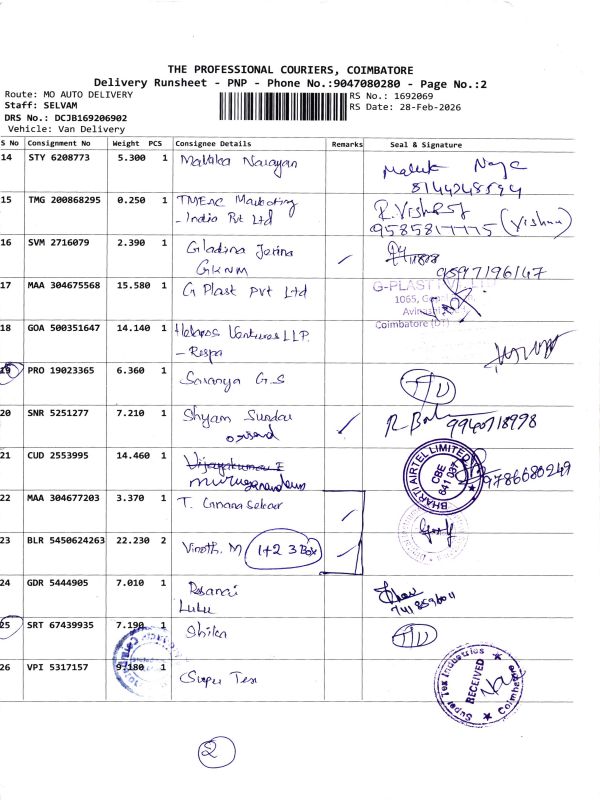 THE PROFESSIONAL COURIERS, COIMBATORE
Delivery Runsheet - PNP - Phone No.:9047080280 - Page No.:2
Route: MO AUTO DELIVERY
RS No.: 1692069
Staff: SELVAM
RS Date: 28-Feb-2026
DRS No.: DCJB169206902
Vehicle: Van Delivery
S No Consignment No Weight PCS Consignee Details Remarks Seal & Signature
14 STY 6208773 5.300 1 Narayan
8144248594
15 TMG 200868295 0.250 1 Marketing
- India Pvt Ltd
9585817775 (Vishnu)
16 SVM 2716079 2.390 1 Gladina Jerina
GKNM
9597196147
17 MAA 304675568 15.580 1 G Plast Pvt Ltd
G-PLAST
1065,
Coimbatore (DT)
18 GOA 500351647 14.140 1 Ventures LLP.
19 PRO 19023365 6.360 1 Saranya G.S
20 SNR 5251277 7.210 1 Shyam Sundar
9940718998
21 CUD 2553995 14.460 1 Vijayakumar
BHARTI AIRTEL LIMITED
CBE
641 037
9786680249
22 MAA 304677203 3.370 1 T.
23 BLR 5450624263 22.230 2 Vinoth. M 1+2 3 Box
24 GDR 5444905 7.010 1
Lulu
25 SRT 67439935 7.190 1 Shika
26 VPI 5317157 9.180 1 Super Tex
Super Tex Industries
RECEIVED
Coimbatore
2